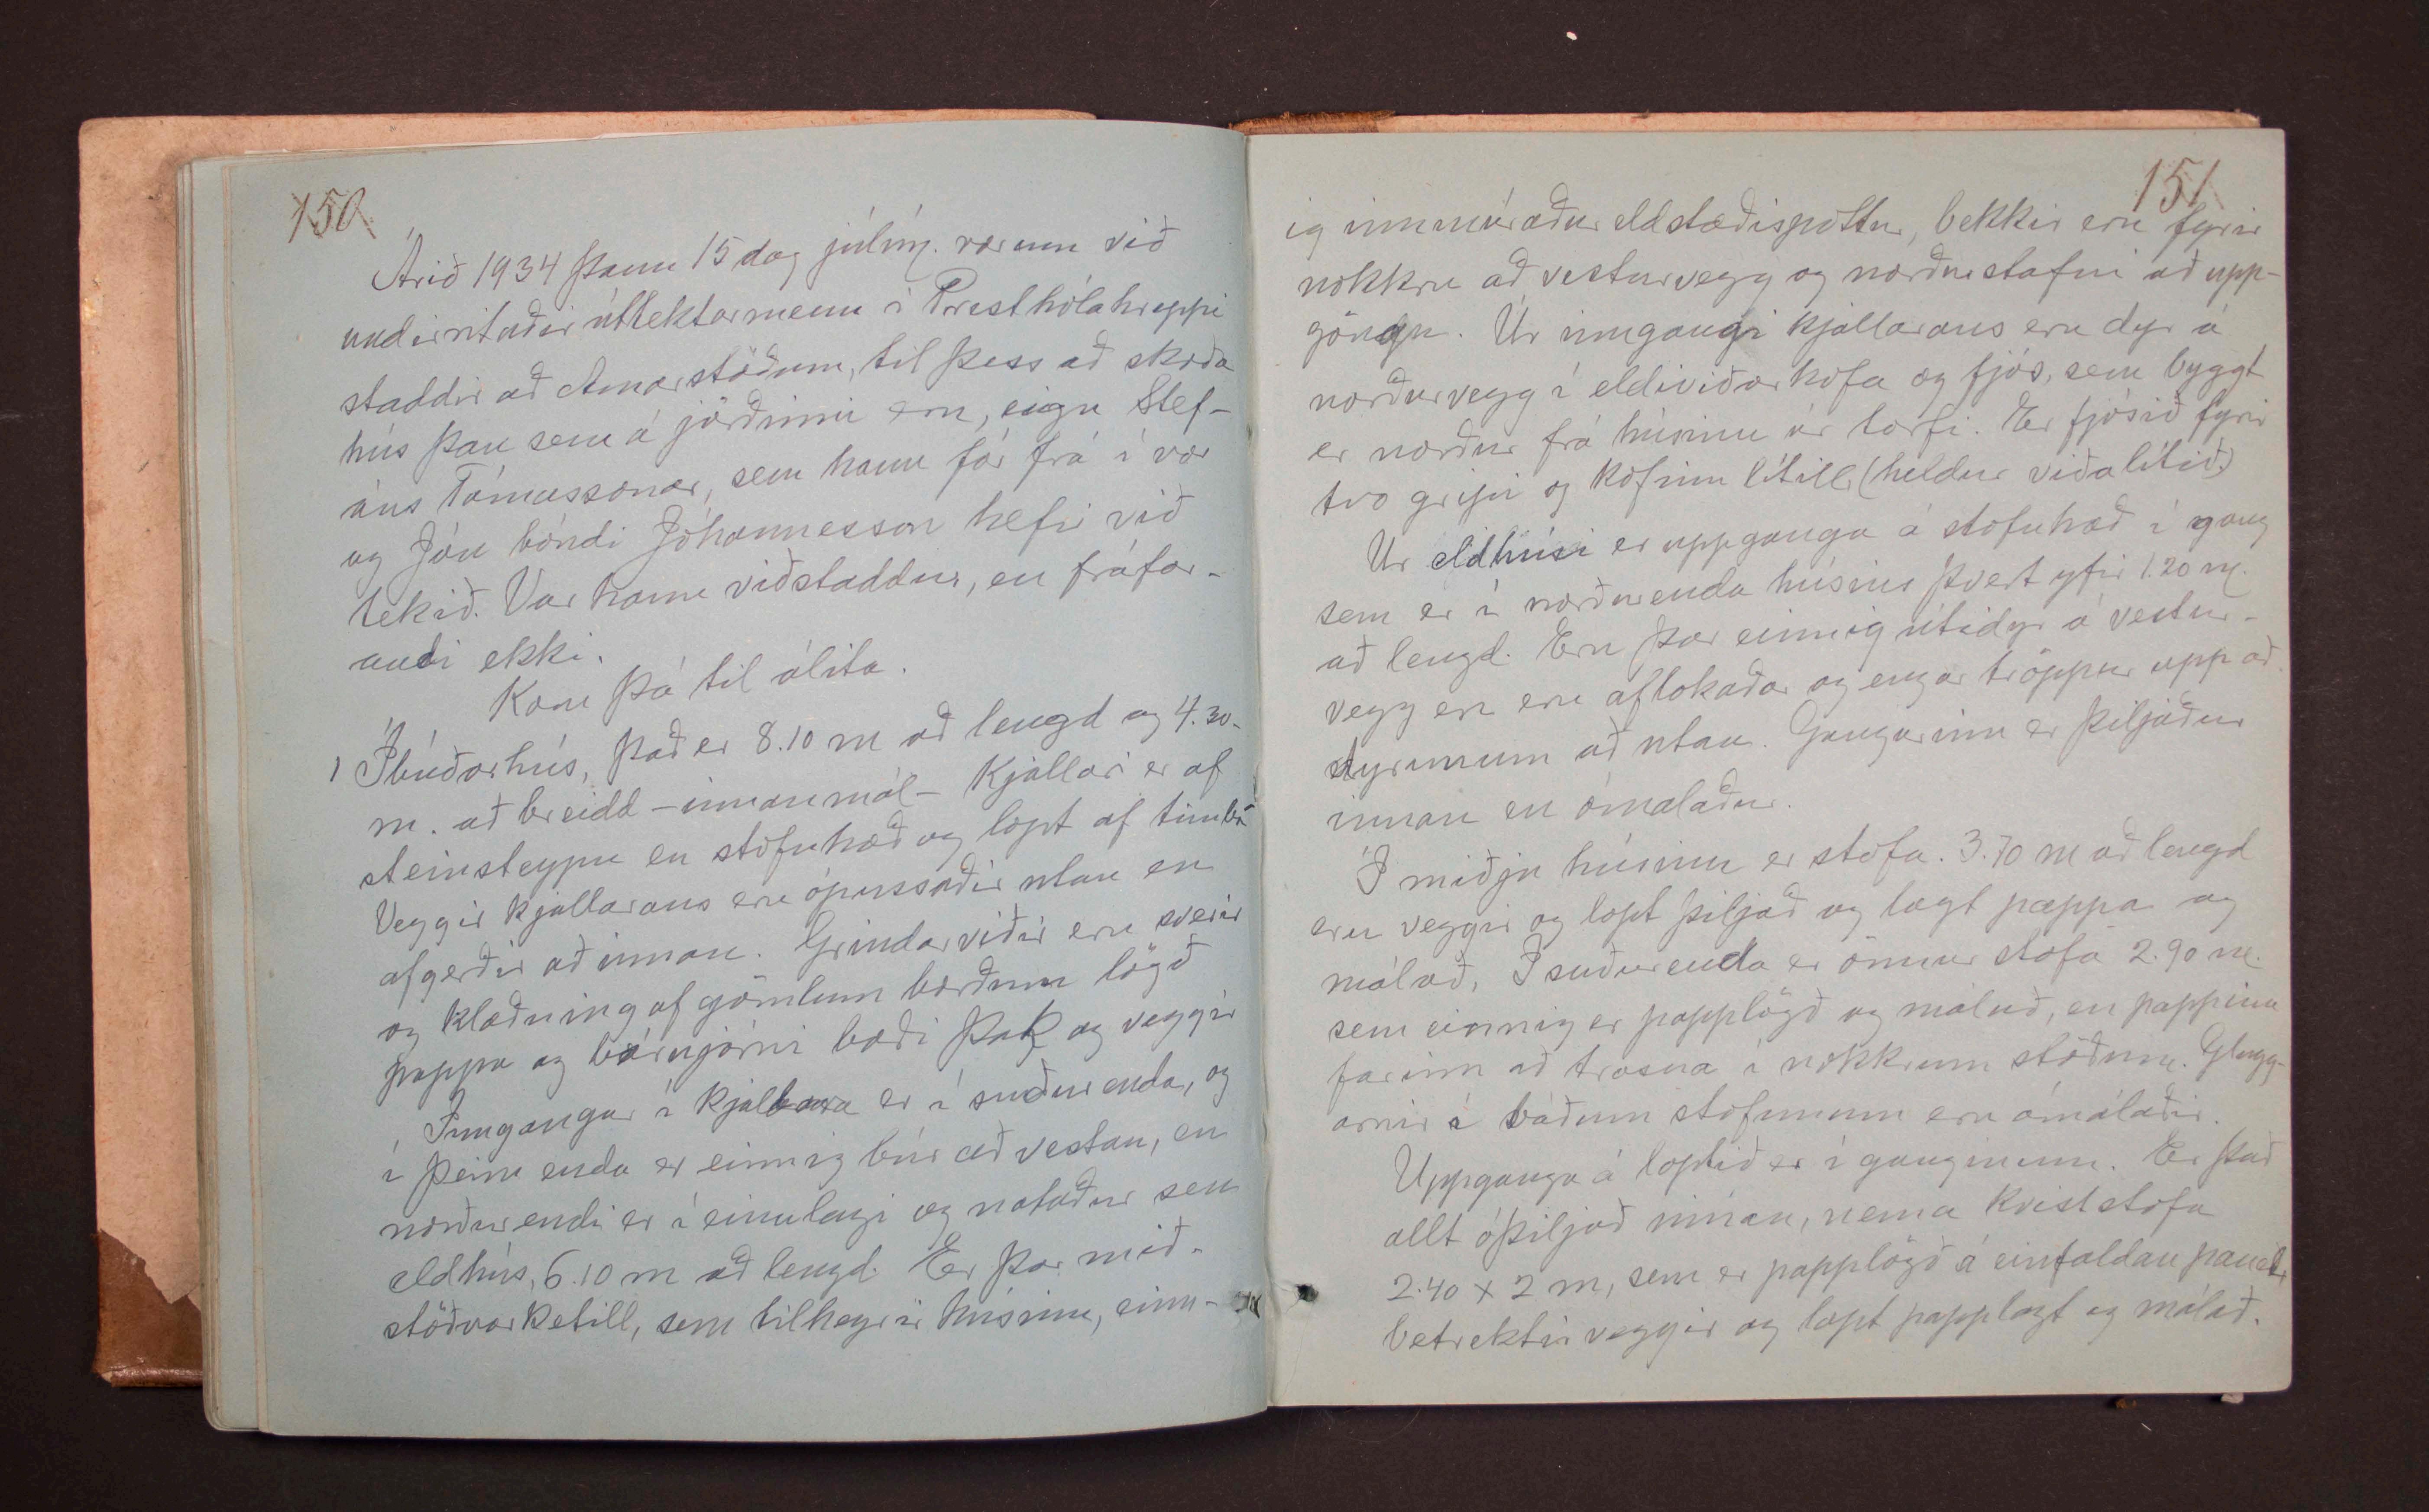 150
Árið 1934 þann 15 dag júlím. vorum við
undirritaðir úttektarmenn í Presthólahreppi
staddir að Arnarstöðum, til þess að skoða
hús þau sem á jörðinni eru, eign Stef-
áns Tómassonar, sem hann fór frá í vor
og Jón bóndi Jóhannesson hefir við
tekið. Var hann viðstaddur, en fráfar-
andi ekki.
Kom þá til álita.
1 Íbúðarhús, það er 8.10 m að lengd og 4.30
m. að breidd - innanmál - Kjallari er af
steinsteypu en stofuhæð og lopt af timbri
Veggir kjallarans eru ópussaðir utan en
afgerðir að innan. Grindarviðir eru sverir
og klæðning af gömlum borðum lögð
pappa og bárujárni bæði þak og veggir
Inngangur í kjallara er í suðurenda, og
í þeim enda er einnig búr að vestan, en
norðurendi er í einulagi og notaður sem
eldhús, 6.10 m að lengd. Er þar mið-
stöðvarketill, sem tilheyrir húsinu, einn-
151
ig innmúraður eldstæðispottur, bekkir eru fyrir
nokkru að vesturvegg og norðurstafni að upp-
göngu. Úr inngangi kjallarans eru dyr á
norðurvegg í eldiviðarkofa og fjós, sem byggt
er norður frá húsinu úr torfi. Er fjósið fyrir
tvo gripi og kofinn lítill (heldur viðalítið.)
Úr eldhúsi er uppganga á stofuhæð í gang
sem er í norðurenda húsins þvert yfir 1.20 m.
að lengd. Eru þar einnig útidyr á vestur-
vegg en eru aflokaðar og engar tröppur upp að
dyrunum að utan. Gangurinn er þiljaður
innan en ómalaður.
Í miðju húsinu er stofa. 3.70 m að lengd
eru veggir og lopt þiljað og lagt pappa og
málað. Í suðurenda er önnur stofa 2.90 m.
sem einnig er papplögð og máluð, en pappinn
farinn að trosna í nokkrum stöðum. Glugg-
arnir í báðum stofunum eru ómálaðir.
Uppganga á loptið er í ganginum. Er það
allt óþiljað innan, nema kviststofa
2.40 x 2 m, sem er papplögð á einfaldan panel
betrektir veggir og lopt papplagt og málað.